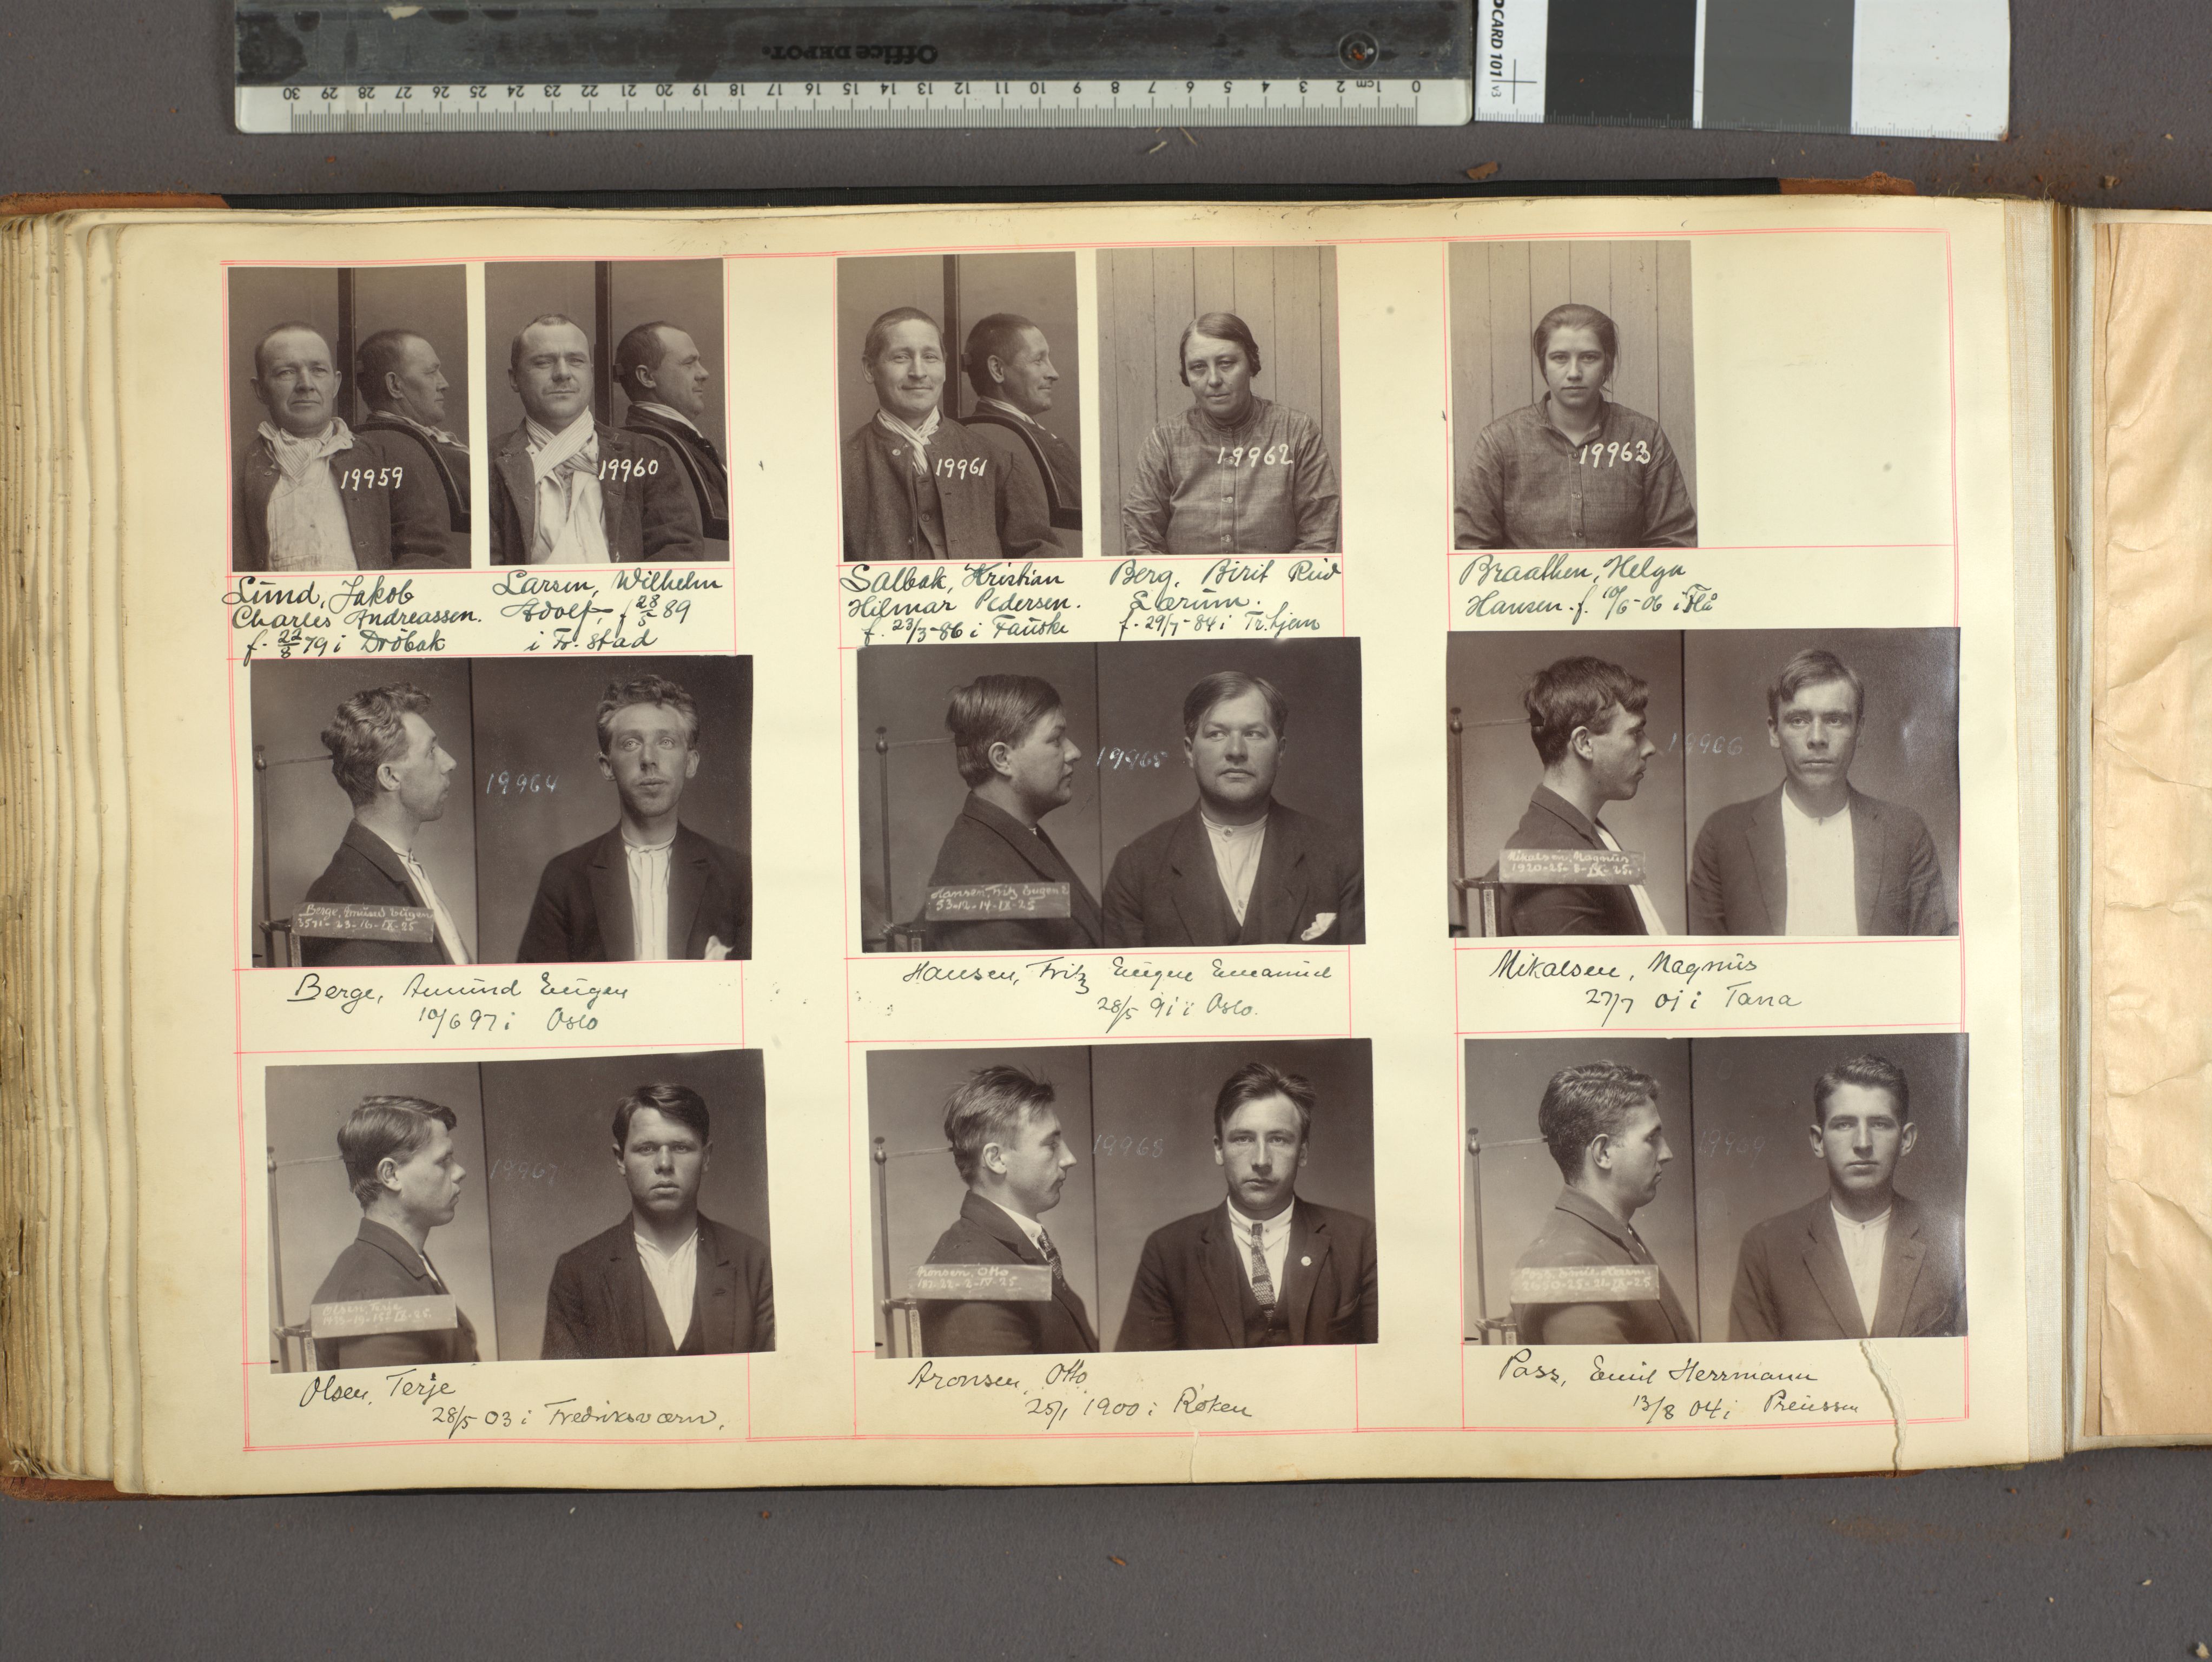 Office DEPOT.
0 1cm 2 3 4 5 6 7 8 9 10 11 12 13 14 15 16 17 18 19 20 21 22 23 24 25 26 27 28 29 30
CARD 101 v3
19959
19960
19961
19962
19963
Lund, Jakob
Charles Andreassen.
f. 22/8 79 i Dröbak
Larsen, Wilhelm
Adolf, f 28/5 89
i Fr. stad
Salbak, Kristian
Hilmar Pedersen.
f. 23/3-86 i Fauske
Berg, Birit Riid
Lærum.
f. 29/7-84 i Tr.hjem
Braathen, Helga
Hansen. f. 10/6-06 i Flå
19964
Berge, Amund Eugen
3571-23-16-IX-25
19965
Hansen, Fritz Eugen E
53-12-14-IX-25
19966
Mikalsen, Magnus
1920-25-8-IX-25.
Berge, Amund Eugen
10/6 97 i Oslo
Hansen, Fritz Eugen Emanuel
28/5 91 i Oslo.
Mikalsen, Magnus
27/7 01 i Tana
19967
Olsen, Terje
19968
Aronsen, Otto
19969
Olsen, Terje
28/5 03 i Fredriksværn,
Aronsen, Otto
25/1 1900 i Röken
Pass, Emil Herrmann
13/8 04 i Preussen